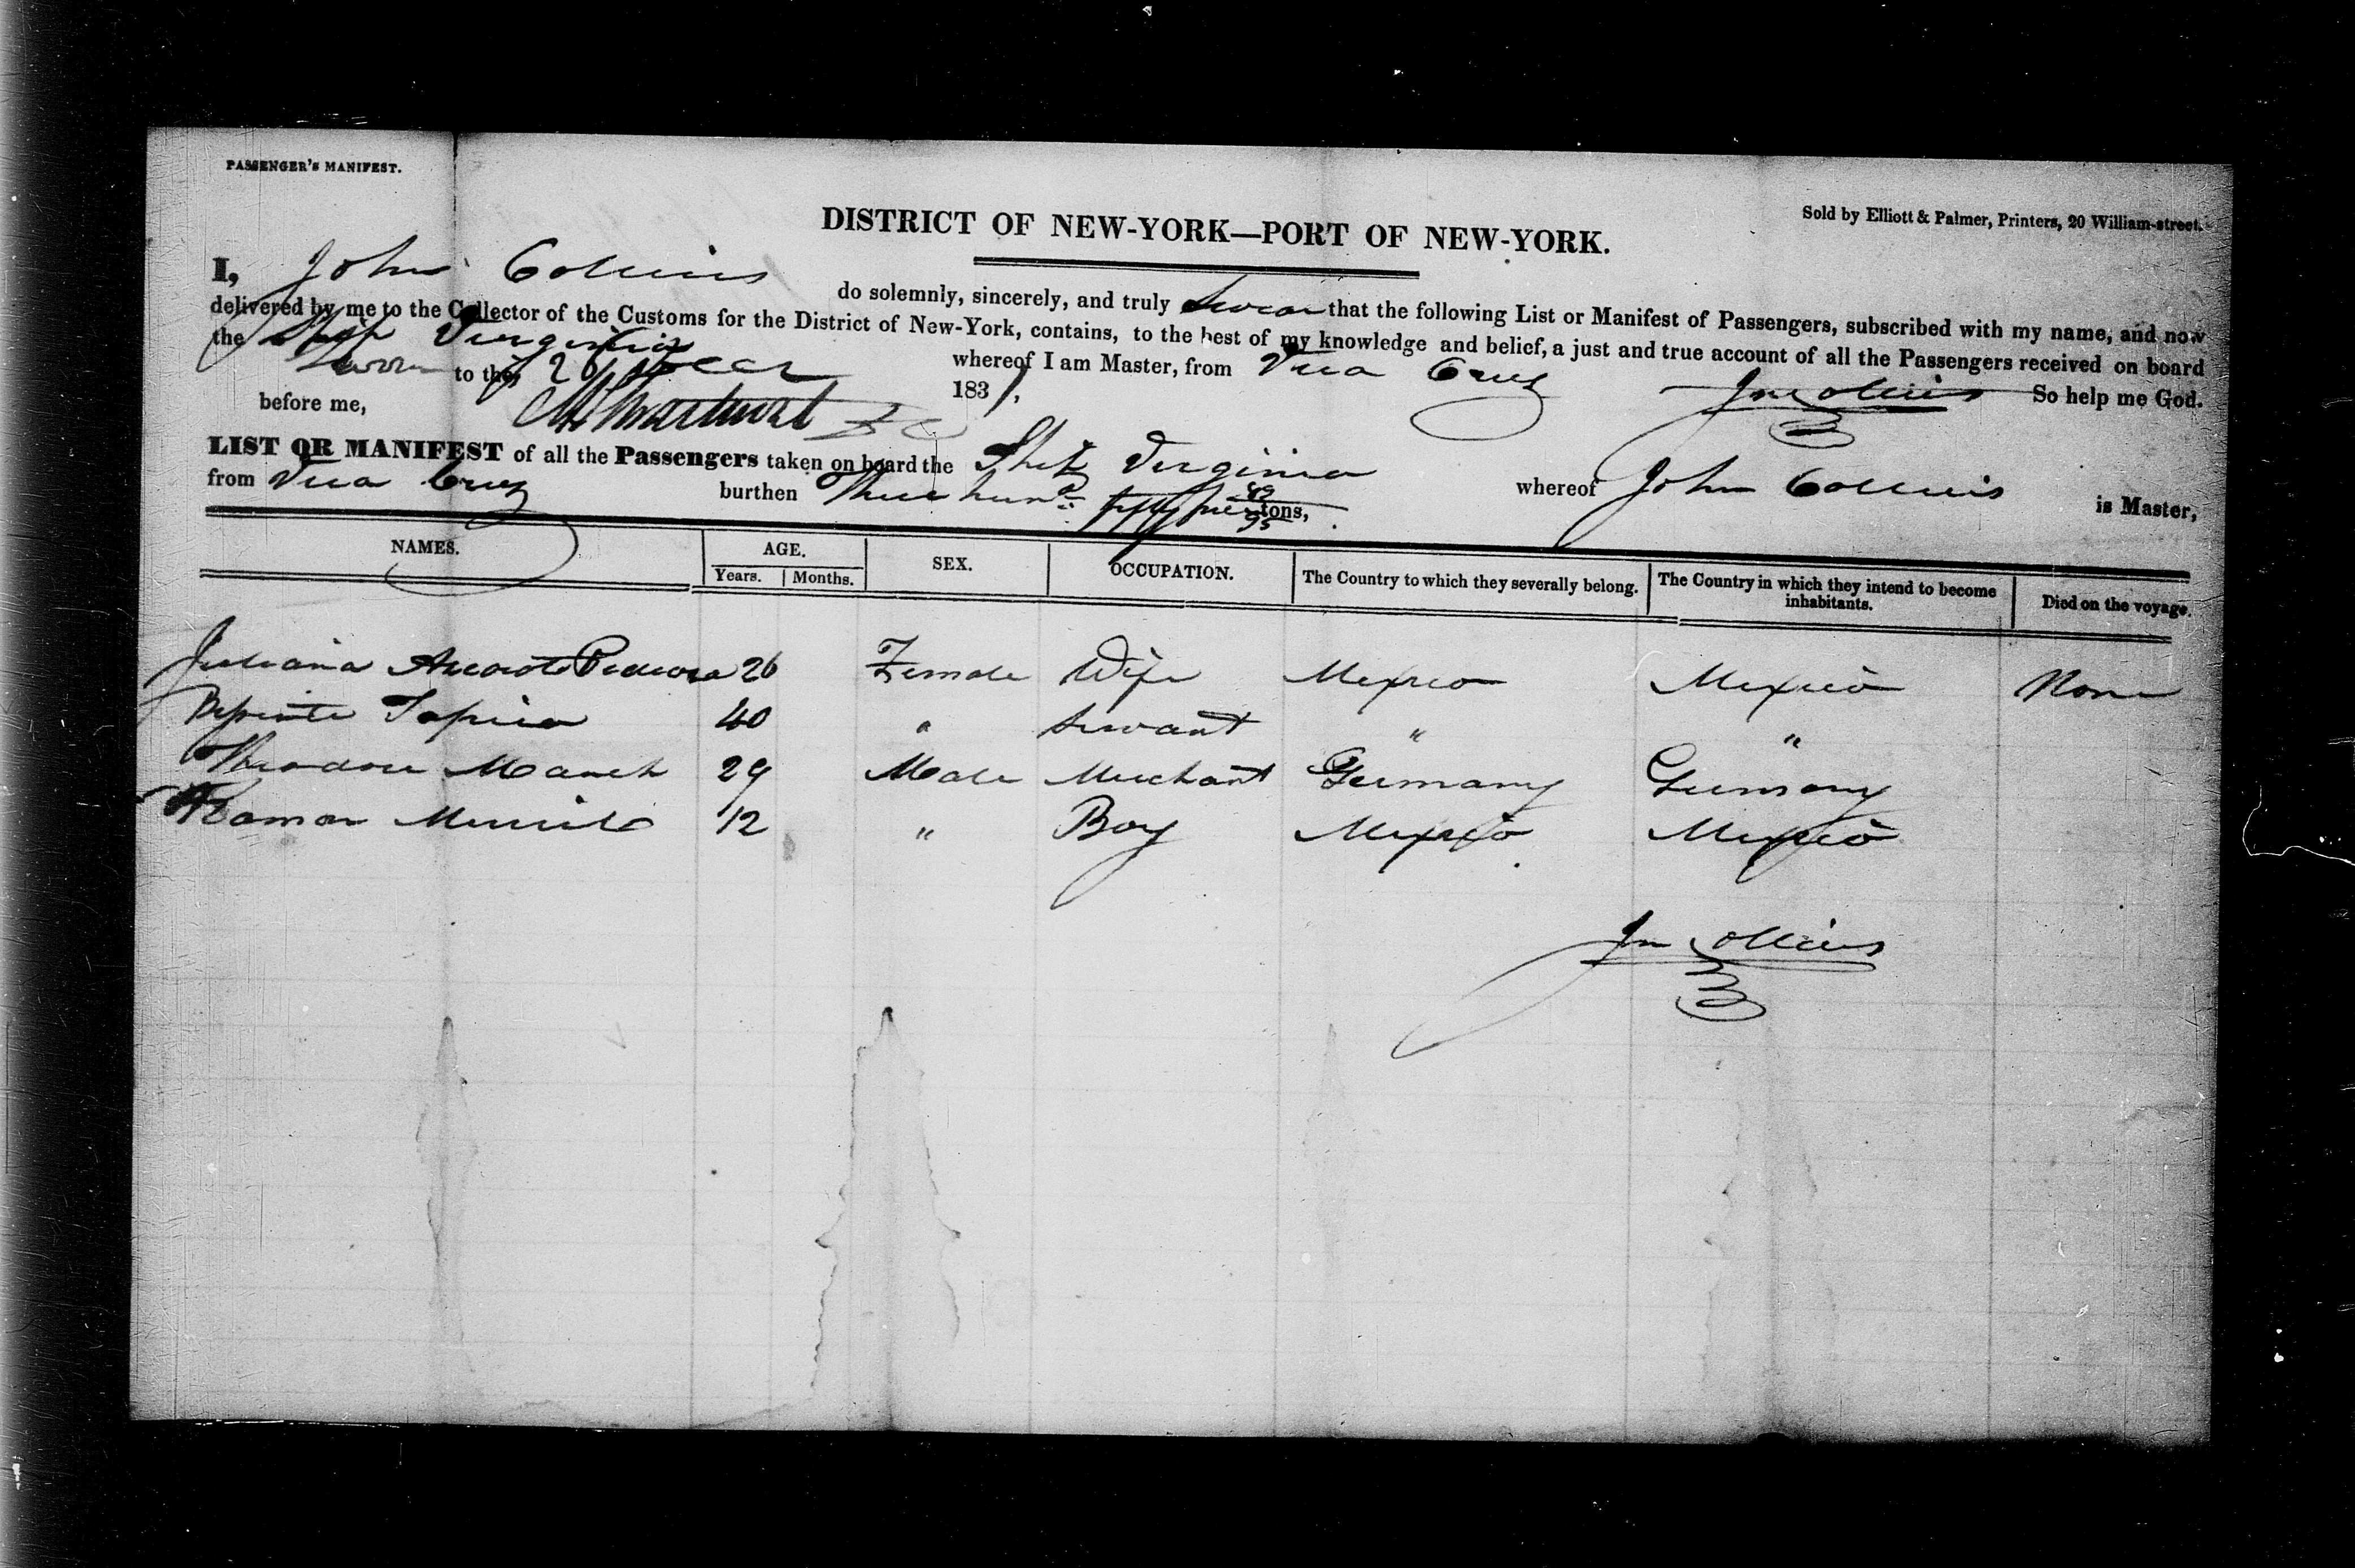 PASSENGER'S MANIFEST.
Sold by Elliott & Palmer, Printers, 20 William-street.
DISTRICT OF NEW-YORK—PORT OF NEW-YORK.
I, John Collins do solemnly, sincerely, and truly Swear that the following List or Manifest of Passengers, subscribed with my name, and now
delivered by me to the Collector of the Customs for the District of New-York, contains, to the best of my knowledge and belief, a just and true account of all the Passengers received on board
the Ship Virginia whereof I am Master, from Vera Cruz
Sworn to the 26 Decr 1831, Jno Collins So help me God.
before me,
LIST OR MANIFEST of all the Passengers taken on board the Ship Virginia whereof John Collins is Master,
from Vera Cruz burthen Three hund fifty tons,
NAMES. AGE. SEX. OCCUPATION. The Country to which they severally belong. The Country in which they intend to become inhabitants. Died on the voyage.
Years. Months.
Juliana 26 Female Wife Mexico Mexico None
Tapia 40 " Servant " "
Theodore 29 Male Merchant Germany Germany
Ramon 12 " Boy Mexico Mexico
Jno Collins